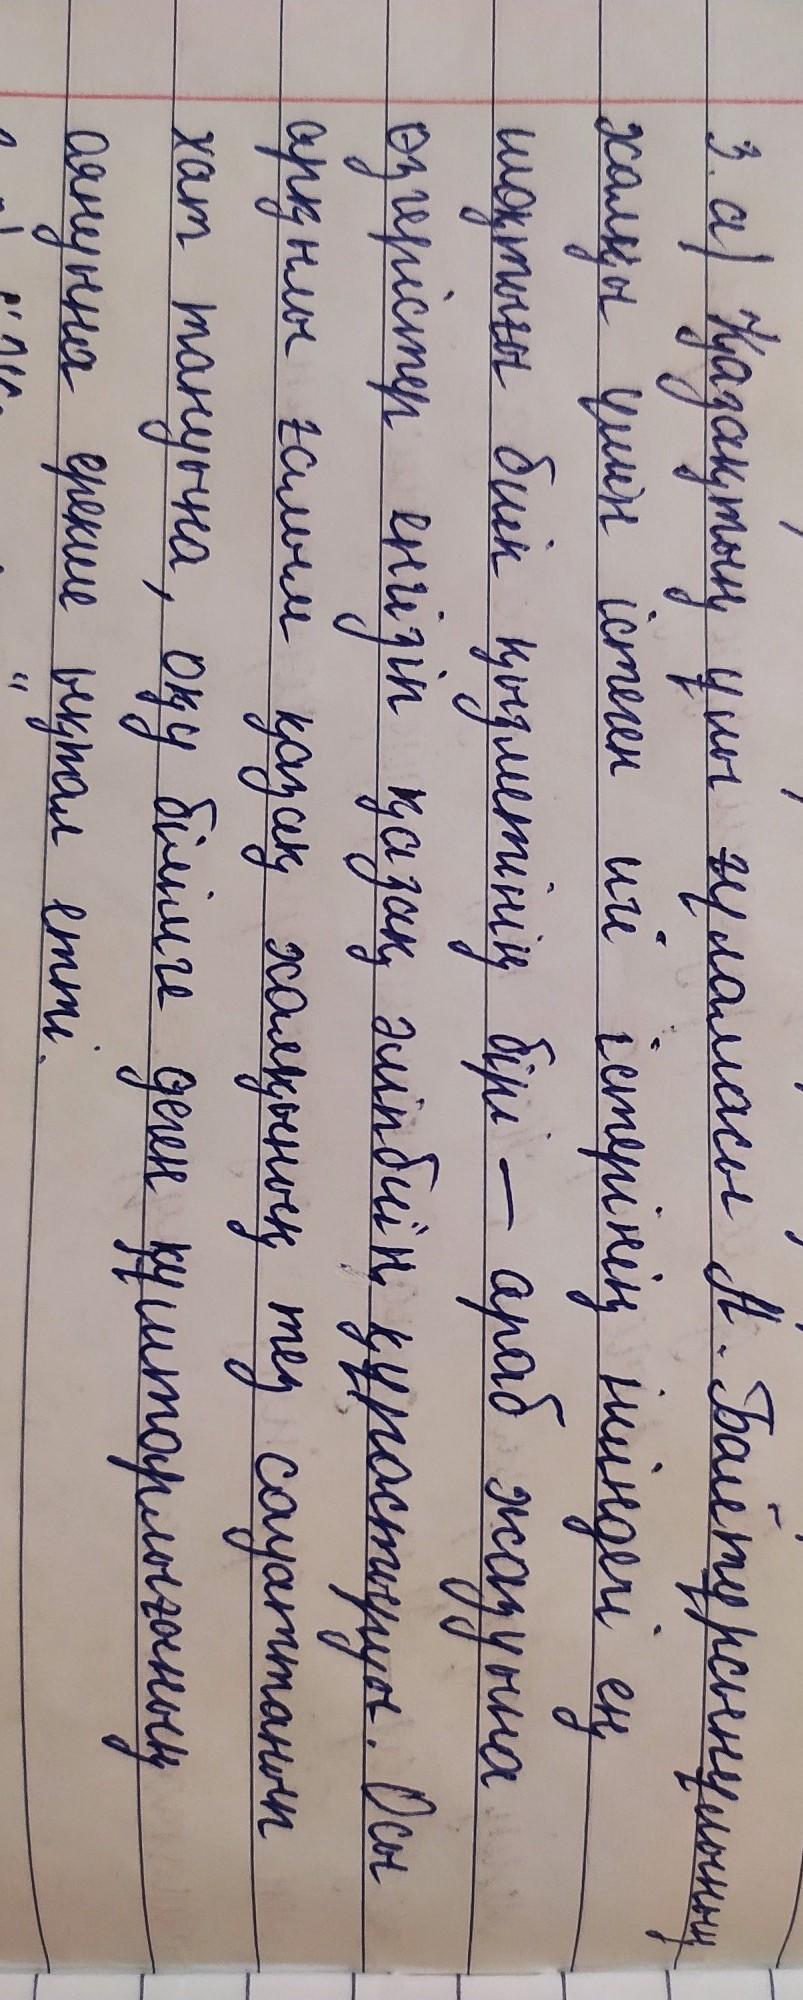 3. а) Қазақтың ұлы ғұламасы А. Байтұрсынұлының
халқы үшін істеген игі істерінің ішіндегі ең
шоқтығы биік қызметінің бірі – араб жазуына
өзгерістер енгізіп қазақ әліпбиін құрастыруы. Осы
арқылы ғалым қазақ халқының тез сауаттанып
хат тануына, оқу білімге деген құштарлығының
оянуына ерекше ықпал етті.